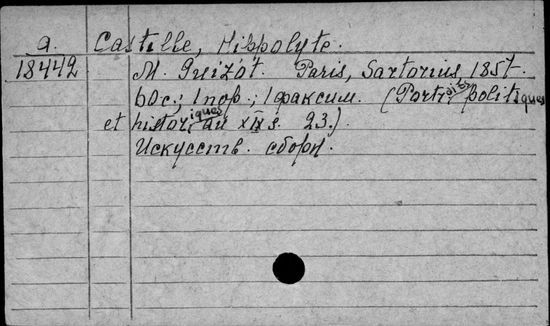 a. Castille, Hippolyte.
18442 M. Guizot. Paris, Sartorius, 1857.
60с.; 1 пор.; 1 факсим. (Portraits politiques
et historiques au XIX s. 23.).
Искусств. сборн.